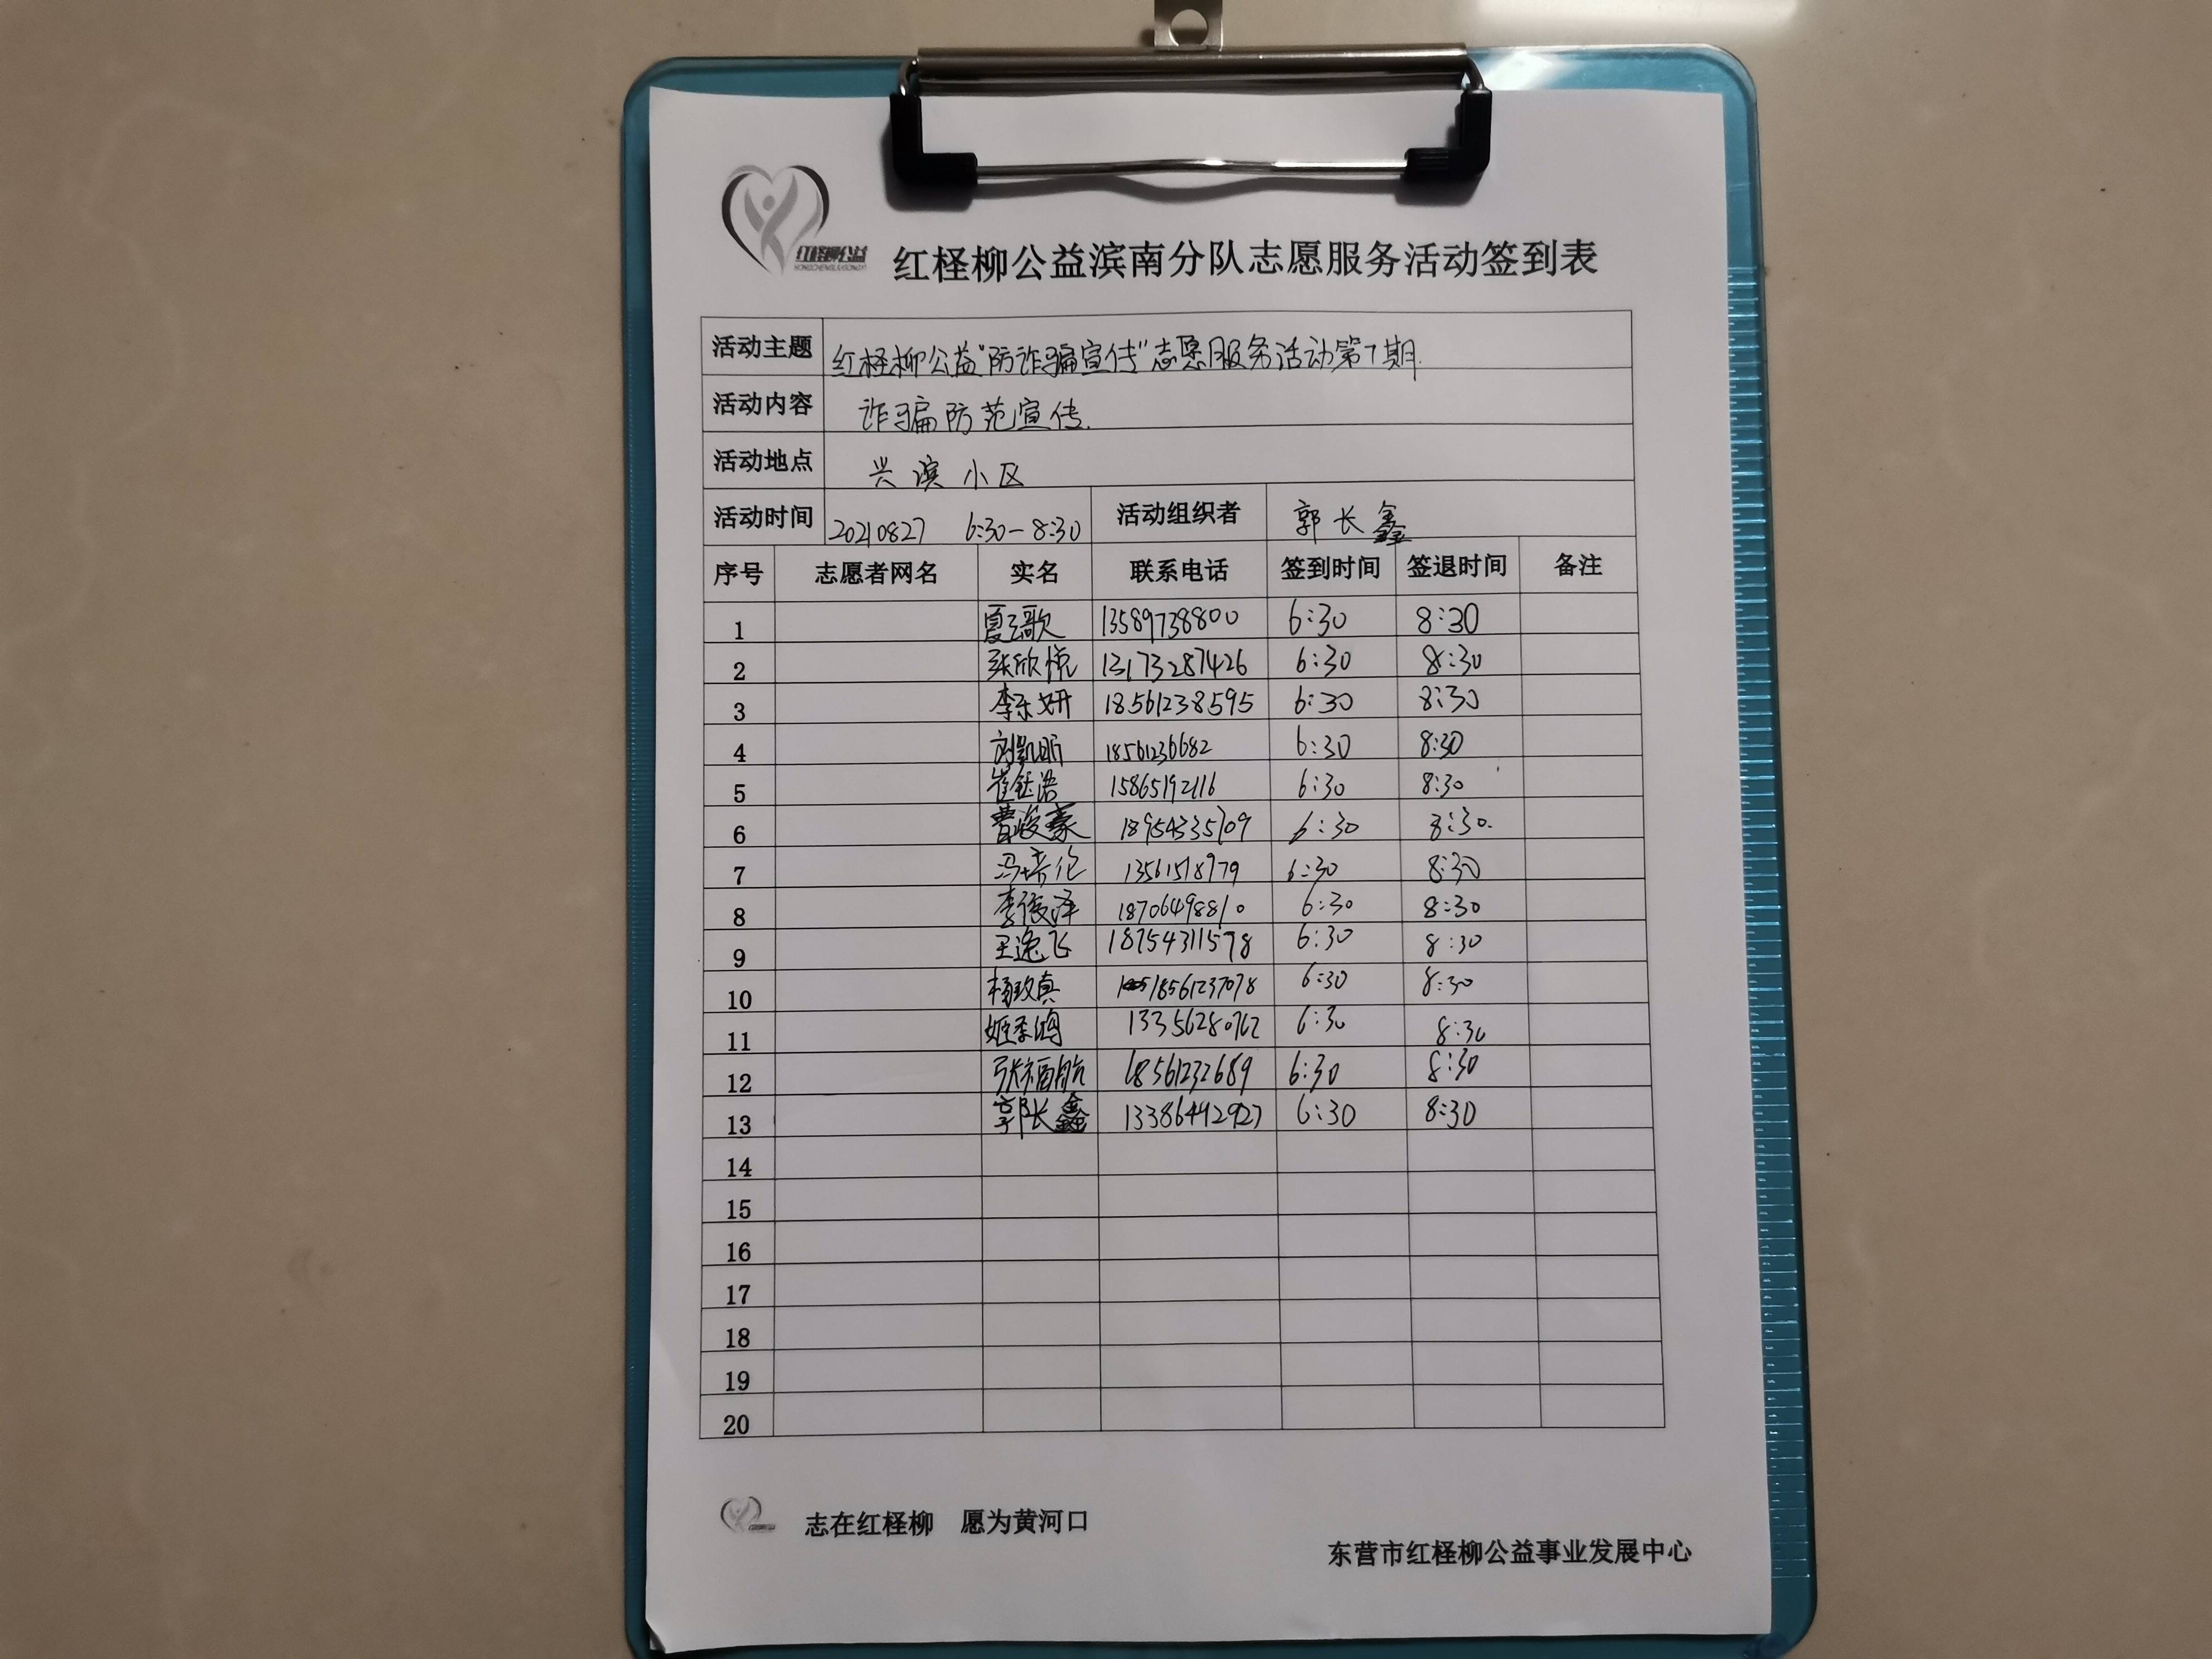 红柽柳公益
HONGCHENGLIUGONGYI
红柽柳公益滨南分队志愿服务活动签到表
活动主题 红柽柳公益"防诈骗宣传"志愿服务活动第7期.
活动内容 诈骗防范宣传.
活动地点 兴滨小区
活动时间 20210827 6:30-8:30 活动组织者 郭长鑫
序号 志愿者网名 实名 联系电话 签到时间 签退时间 备注
1 夏云歌 13589738800 6:30 8:30
2 张欣悦 13173287426 6:30 8:30
3 李东妍 18561238595 6:30 8:30
4 刘凯昕 18561236682 6:30 8:30
5 崔钰浩 15865192116 6:30 8:30
6 曹峻豪 18954335709 6:30 8:30.
7 冯培伦 13561518979 6:30 8:30
8 李俊泽 18706498810 6:30 8:30
9 王逸飞 18754311578 6:30 8:30
10 杨玫真 18561237078 6:30 8:30
11 姬秉鸿 13356280762 6:30 8:30
12 张福航 18561232689 6:30 8:30
13 郭长鑫 13386442927 6:30 8:30
14
15
16
17
18
19
20
志在红柽柳 愿为黄河口
东营市红柽柳公益事业发展中心